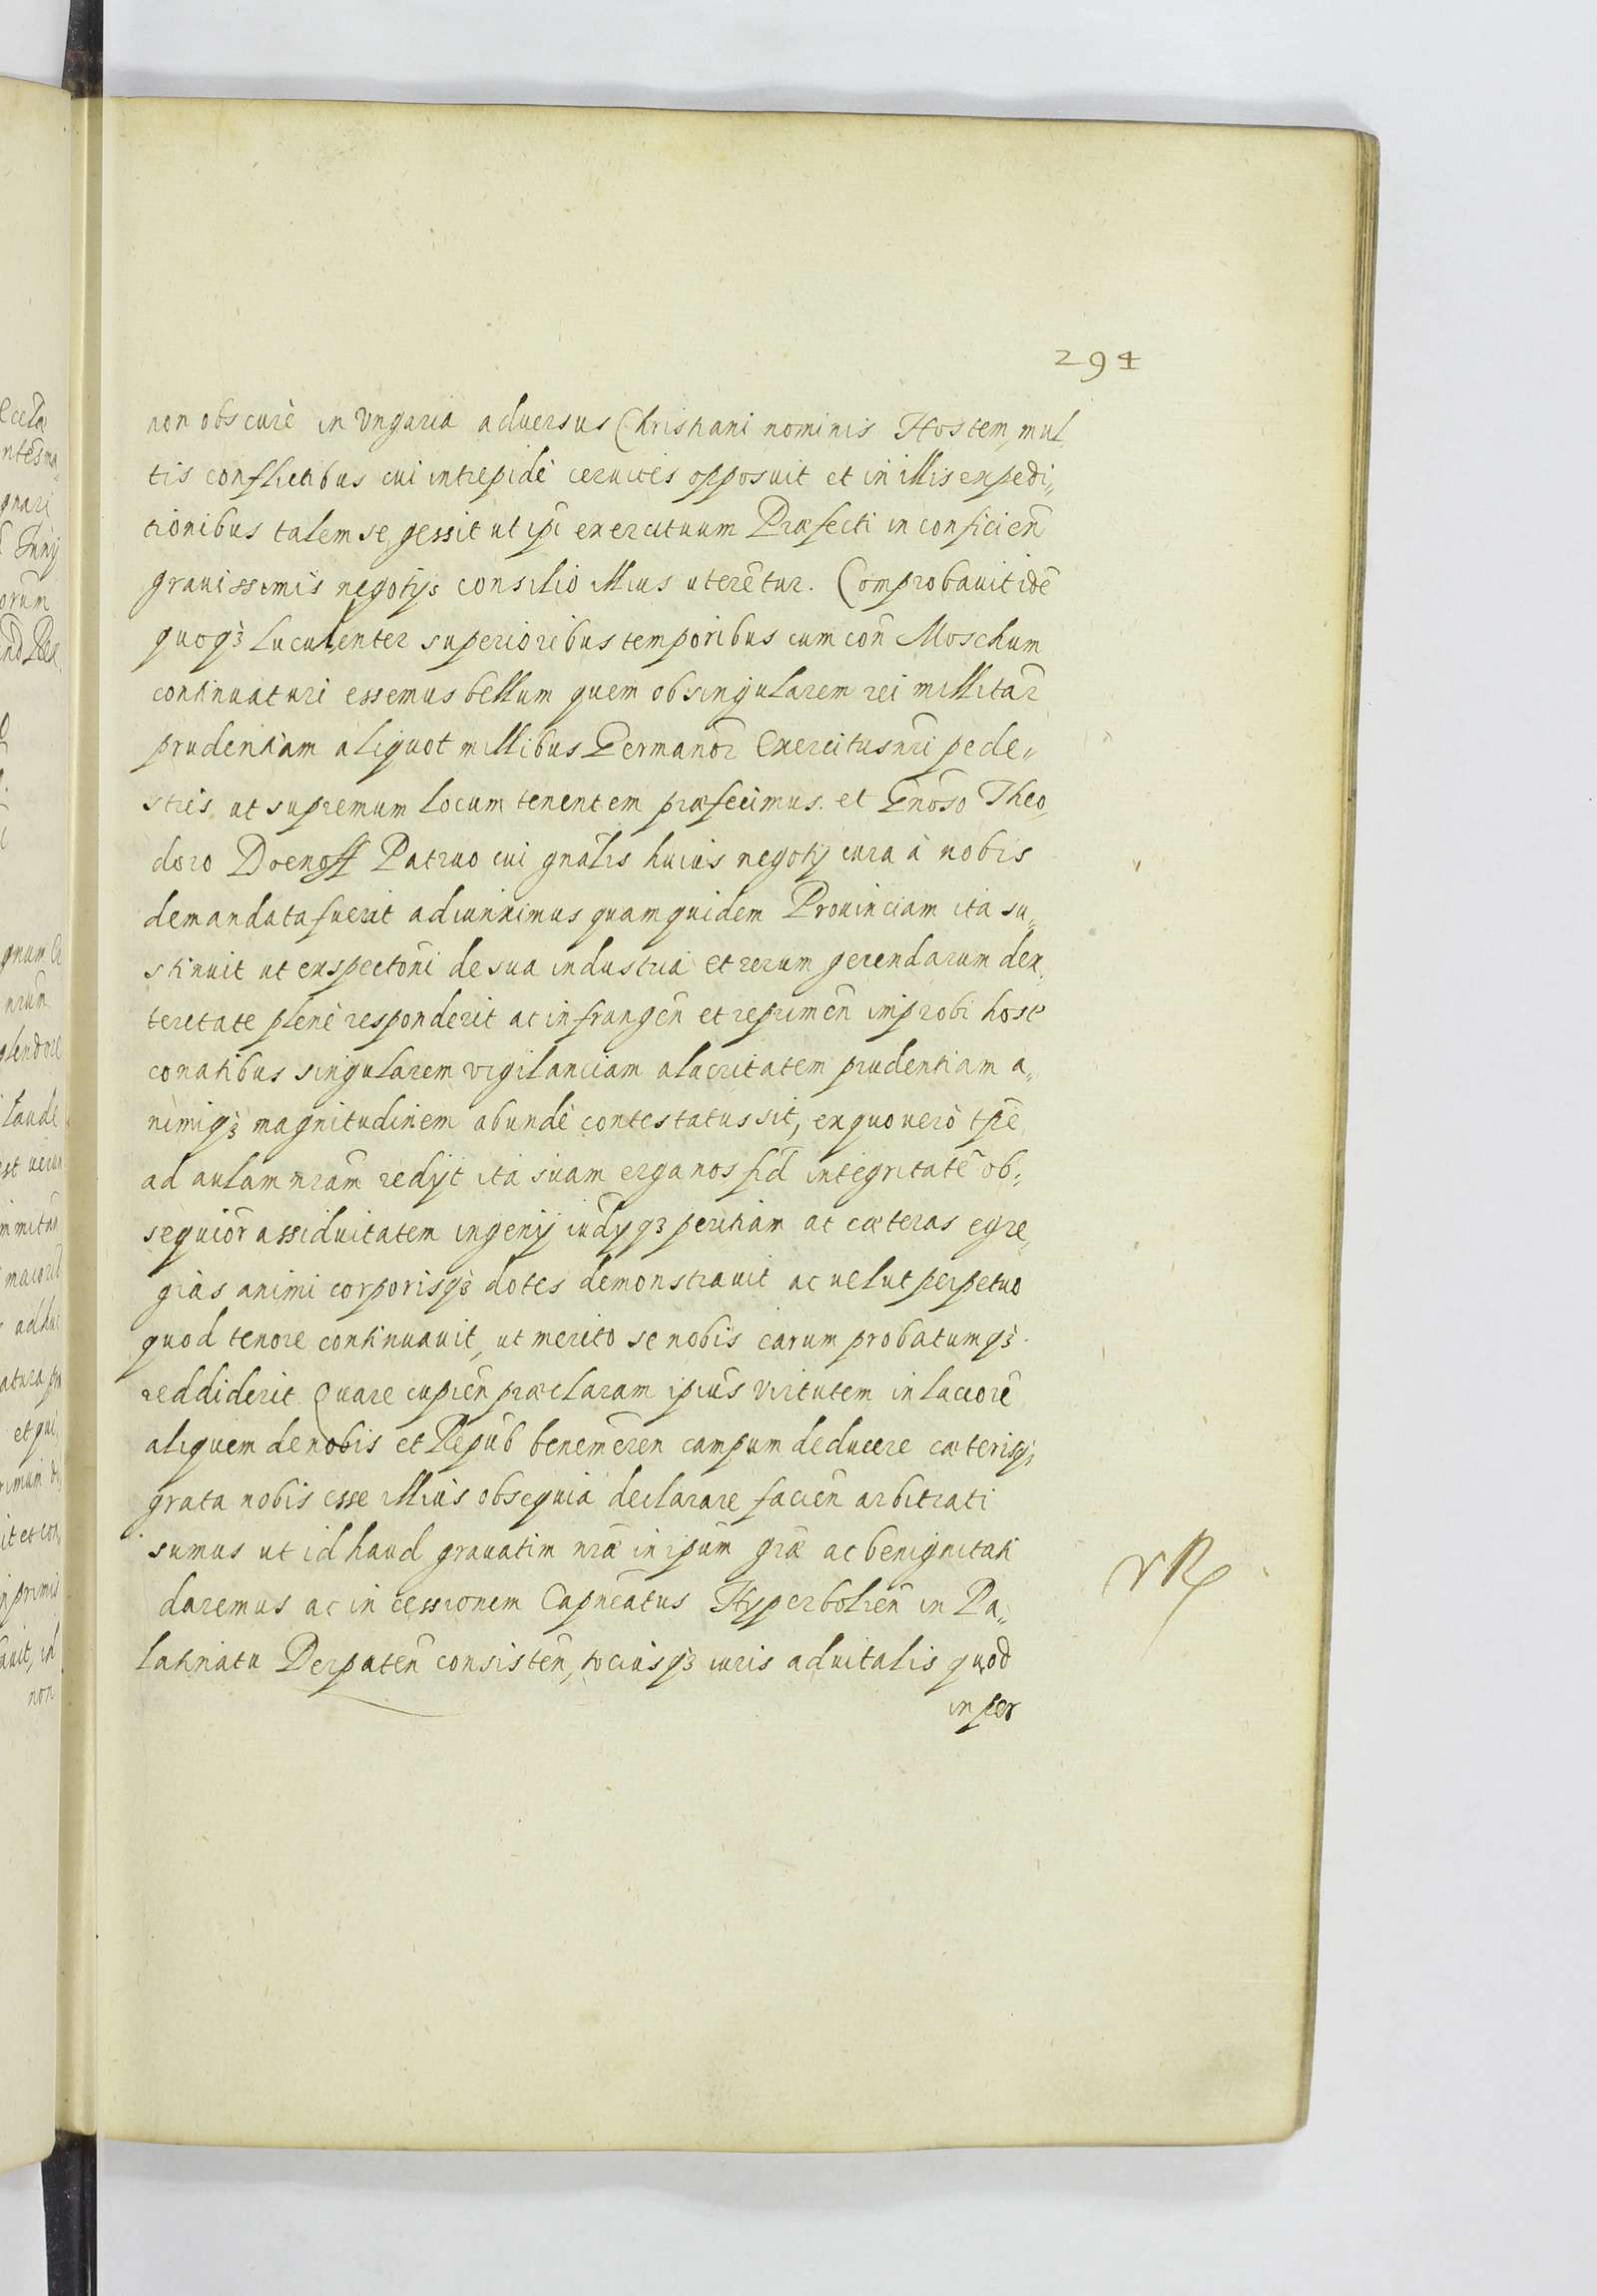 294
non obscurè in Vngaria aduersus Christiani nominis Hostem, mul„
tis conflictibus cui intrepidè ceruices opposuit et in illis expedi„
tionibus talem se gessit ut ipi̅ exercituum Præfecti in conficien̅
grauissimis negotijs consilio illius uteretur. Comprobauit ide̅
quoqꝫ luculenter superioribus temporibus cum con̅ Moschum
continuaturi essemus bellum quem ob singularem rei millitar̅
prudentiam aliquot millibus Germanor̅ Exercitus nr̅i pede„
stris, ut supremum locum tenentem præfecimus. et Gn̅oso Theo„
doro Doenoff Patruo cui gn̅alis huius negotij cura à nobis
demandata fuerit adiunximus quam quidem Prouinciam ita su„
stinuit ut exspectoni̅ de sua industria et rerum gerendarum dex„
teretate plenè responderit ac in frangen̅ et reprimen̅ improbi host̅
conatibus singularem vigilanciam alacritatem prudentiam a„
nimiqꝫ magnitudinem abundè contestatus sit, ex quo uerò tp̅e
ad aulam nr̅am redijt ita suam erga nos fid̅ integritate̅ ob„
sequior̅ assiduitatem ingenij iud̅yqꝫ peritiam ac cæteras egre„
gias animi corporisqꝫ dotes demonstrauit ac uelut perpetuo
quod tenore continuauit, ut merito se nobis carum probatumqꝫ
reddiderit Quare cupien̅ præclaram ipiu̅s virtutem in laciore̅
aliquem de nobis et Repub̅ benemeren̅ campum deducere cæterisqꝫ
grata nobis esse illius obsequia declarare facien̅ arbitrati
sumus ut id haud grauatim nr̅æ in ipum̅ gr̅æ ac benignitati
daremus ac in cessionem Capneatus̅ Hyperbolien̅ in Pa„
latinatu Derpaten̅ consisten̅, tociusqꝫ iuris aduitalis quod
in per